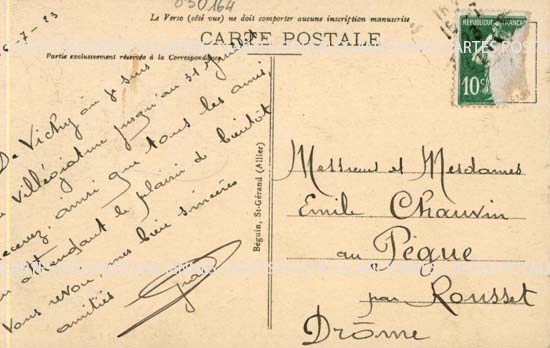 030164
Le Verso (côté vue) ne doit comporter aucune inscription manuscrite
CARTE POSTALE
Partie exclusivement réservée à la Correspondance
7-23
De Vichy où je suis
villégiature jusqu'au 31
recevez, ainsi que tous les amis,
en attendant le plaisir de bientôt
vous revoir, mes bien sincères
amitiés
Béguin, St-Gérand (Allier)
REPUBLIQUE FRANCAISE
10c
Messieurs et Mesdames
Emile Chauvin
au Pègue
par Rousset
Drôme